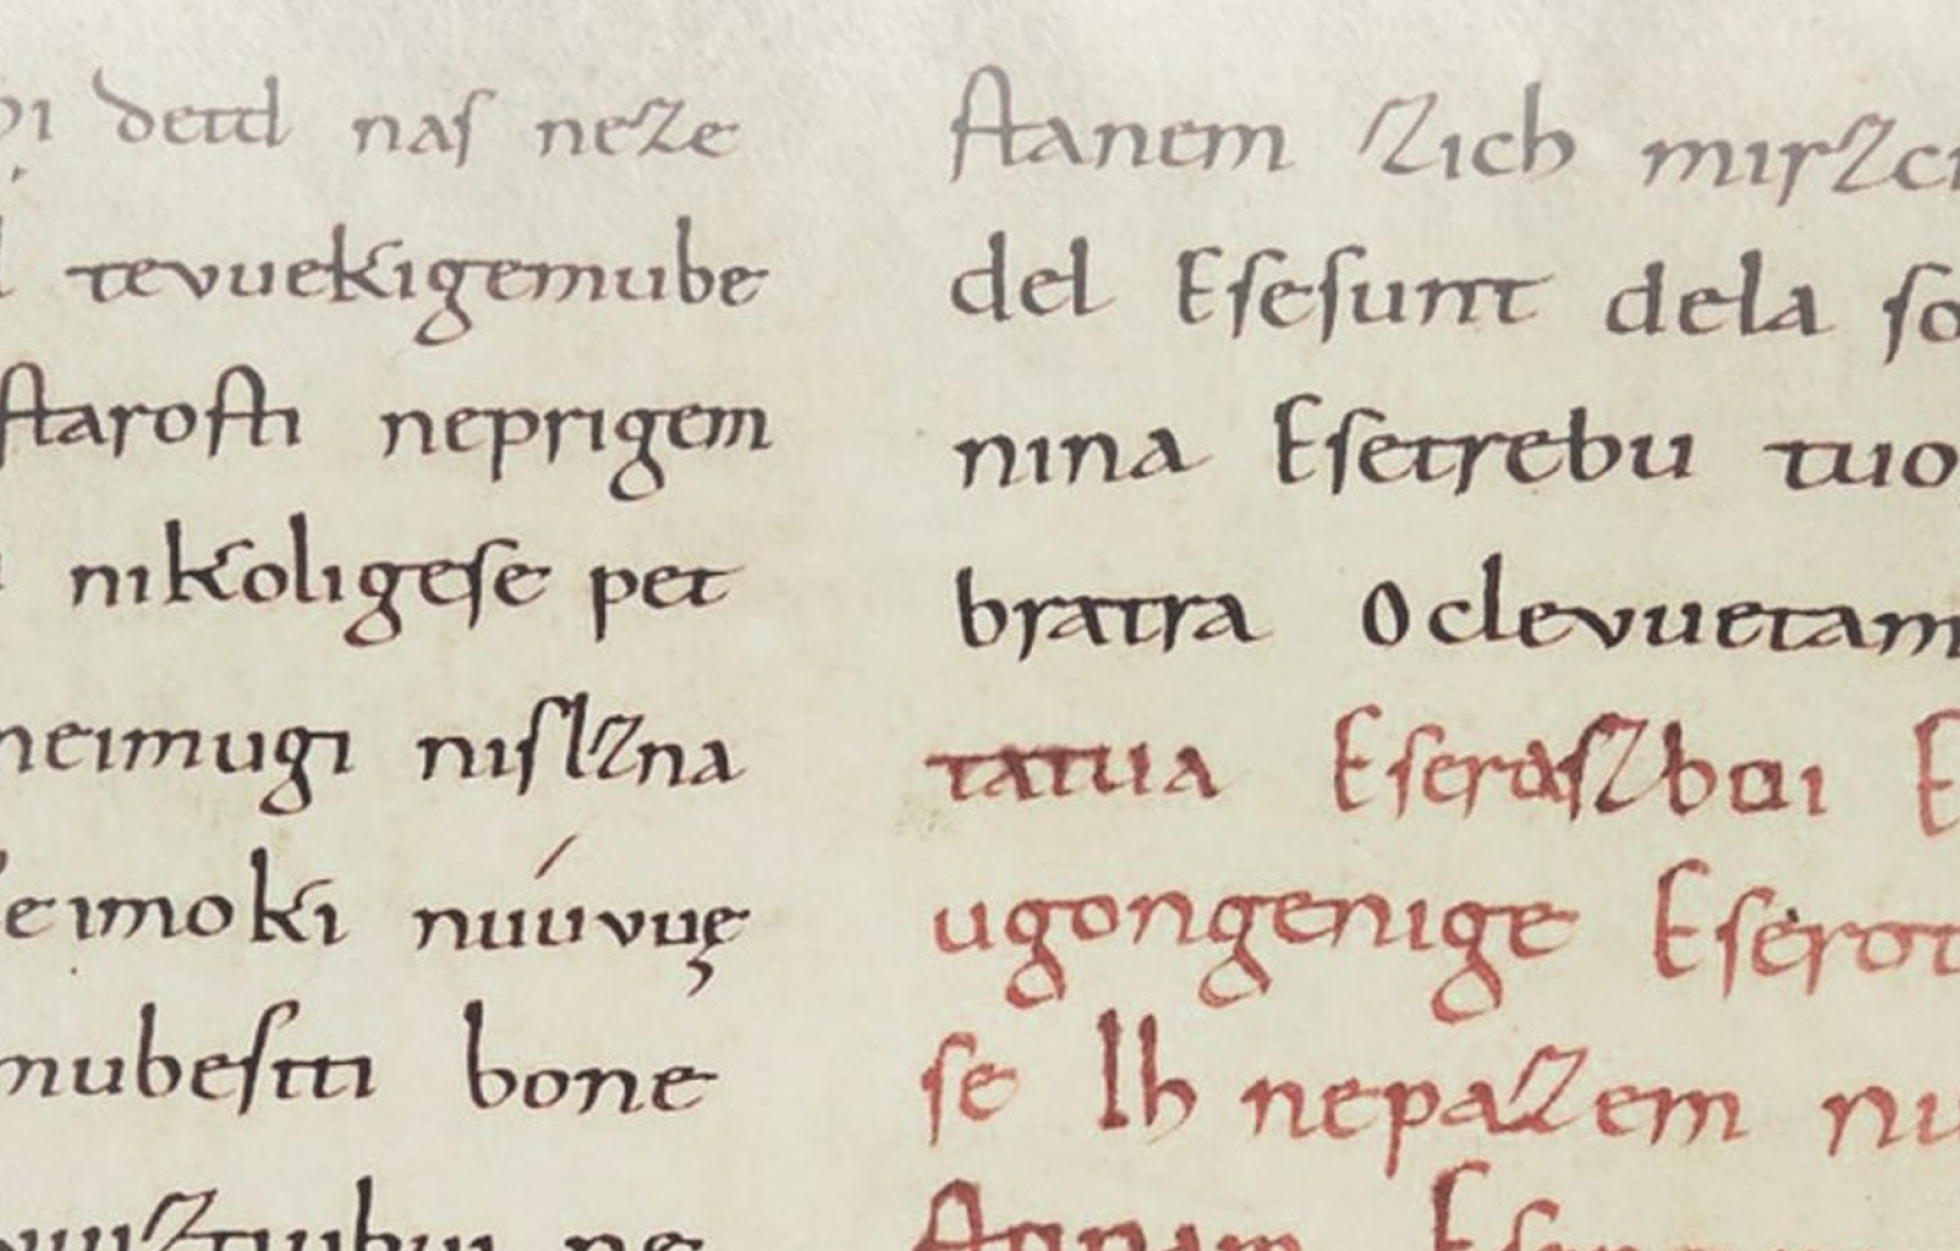 detd naſ neze
tevuekigemube
ſtaroſti neprigem
nikoligeſe pet
neimugi niſlzna
eimoki nuúvuę
mubeſiti bone
ſtanem zich mirzci
del Eſeſunt dela ſo
nina Eſetrebu tuo
bratra Oclevuetam
tatua Eſeraſzboi E
ugongenige Eſerot
ſe Ih nepazem nu